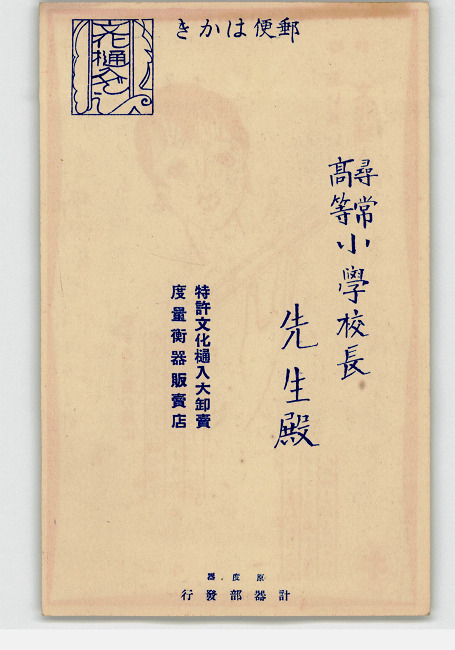 郵便はかき
文化樋
尋常
高等
小學校長
先生殿
特許文化樋入大卸賣
度量衡器販賣店
原度.器
計器部發行